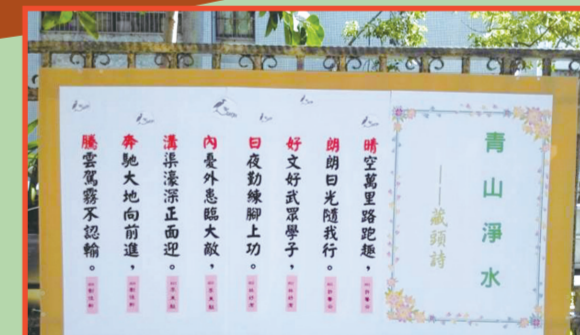 青山淨水
——藏頭詩
晴空萬里路跑趣，
朗朗日光隨我行。
好文好武眾學子，
日夜勤練腳上功。
內憂外患臨大敵，
溝渠濠深正面迎。
奔馳大地向前進，
騰雲駕霧不認輸。